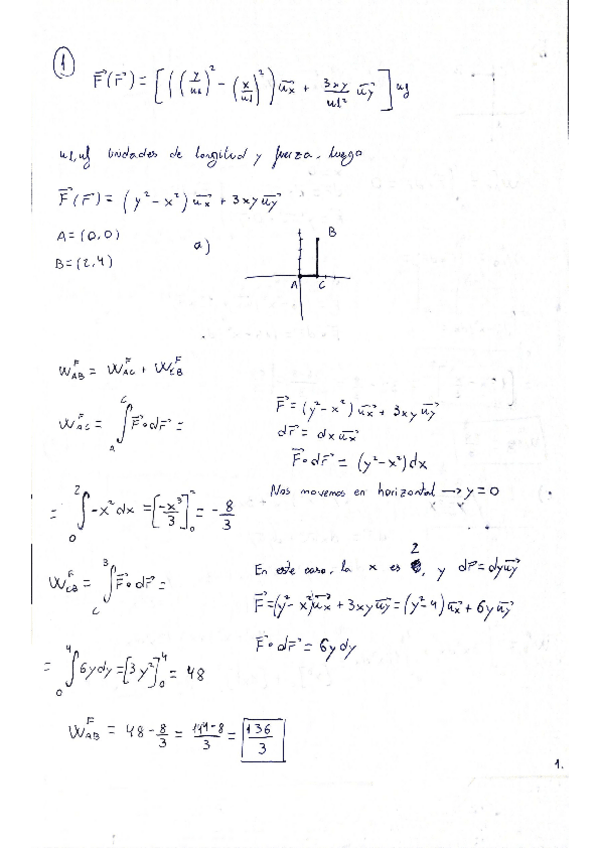 1
F⃗(r⃗) = [((y/ul)² - (x/ul)²) u⃗x + 3xy/ul² u⃗y] uf
ul, uf unidades de longitud y fuerza, luego
F⃗(r⃗) = (y² - x²) u⃗x + 3xy u⃗y
A = (0,0)
B = (2,4)
a)
B
A C
W_AB^F = W_AC^F + W_CB^F
W_AC^F = ∫_A^C F⃗ · dr⃗ =
F⃗ = (y² - x²) u⃗x + 3xy u⃗y
dr⃗ = dx u⃗x
F⃗ · dr⃗ = (y² - x²) dx
Nos movemos en horizontal → y = 0
= ∫_0^2 -x² dx = [-x³/3]_0^2 = -8/3
W_CB^F = ∫_C^B F⃗ · dr⃗ =
En este caso, la x es 2, y dr⃗ = dy u⃗y
F⃗ = (y² - x²) u⃗x + 3xy u⃗y = (y² - 4) u⃗x + 6y u⃗y
F⃗ · dr⃗ = 6y dy
= ∫_0^4 6y dy = [3y²]_0^4 = 48
W_AB^F = 48 - 8/3 = 144-8/3 = 136/3
1.